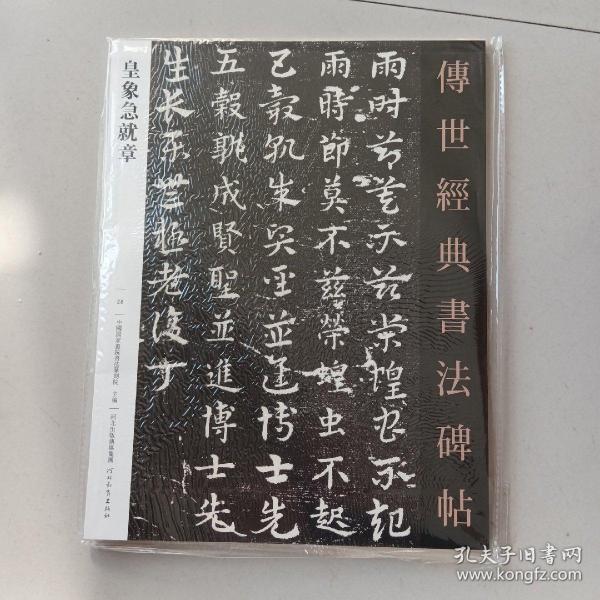 傳世經典書法碑帖
雨時節莫不兹榮蝗虫不起
雨時節莫不兹榮蝗虫不起
五穀孰成賢聖並進博士先
五穀孰成賢聖並進博士先
生長樂無極老復丁
皇象急就章
28
中國國家畫院書法篆刻院 主編
河北出版傳媒集團
河北教育出版社
孔夫子旧书网
www.kongfz.com